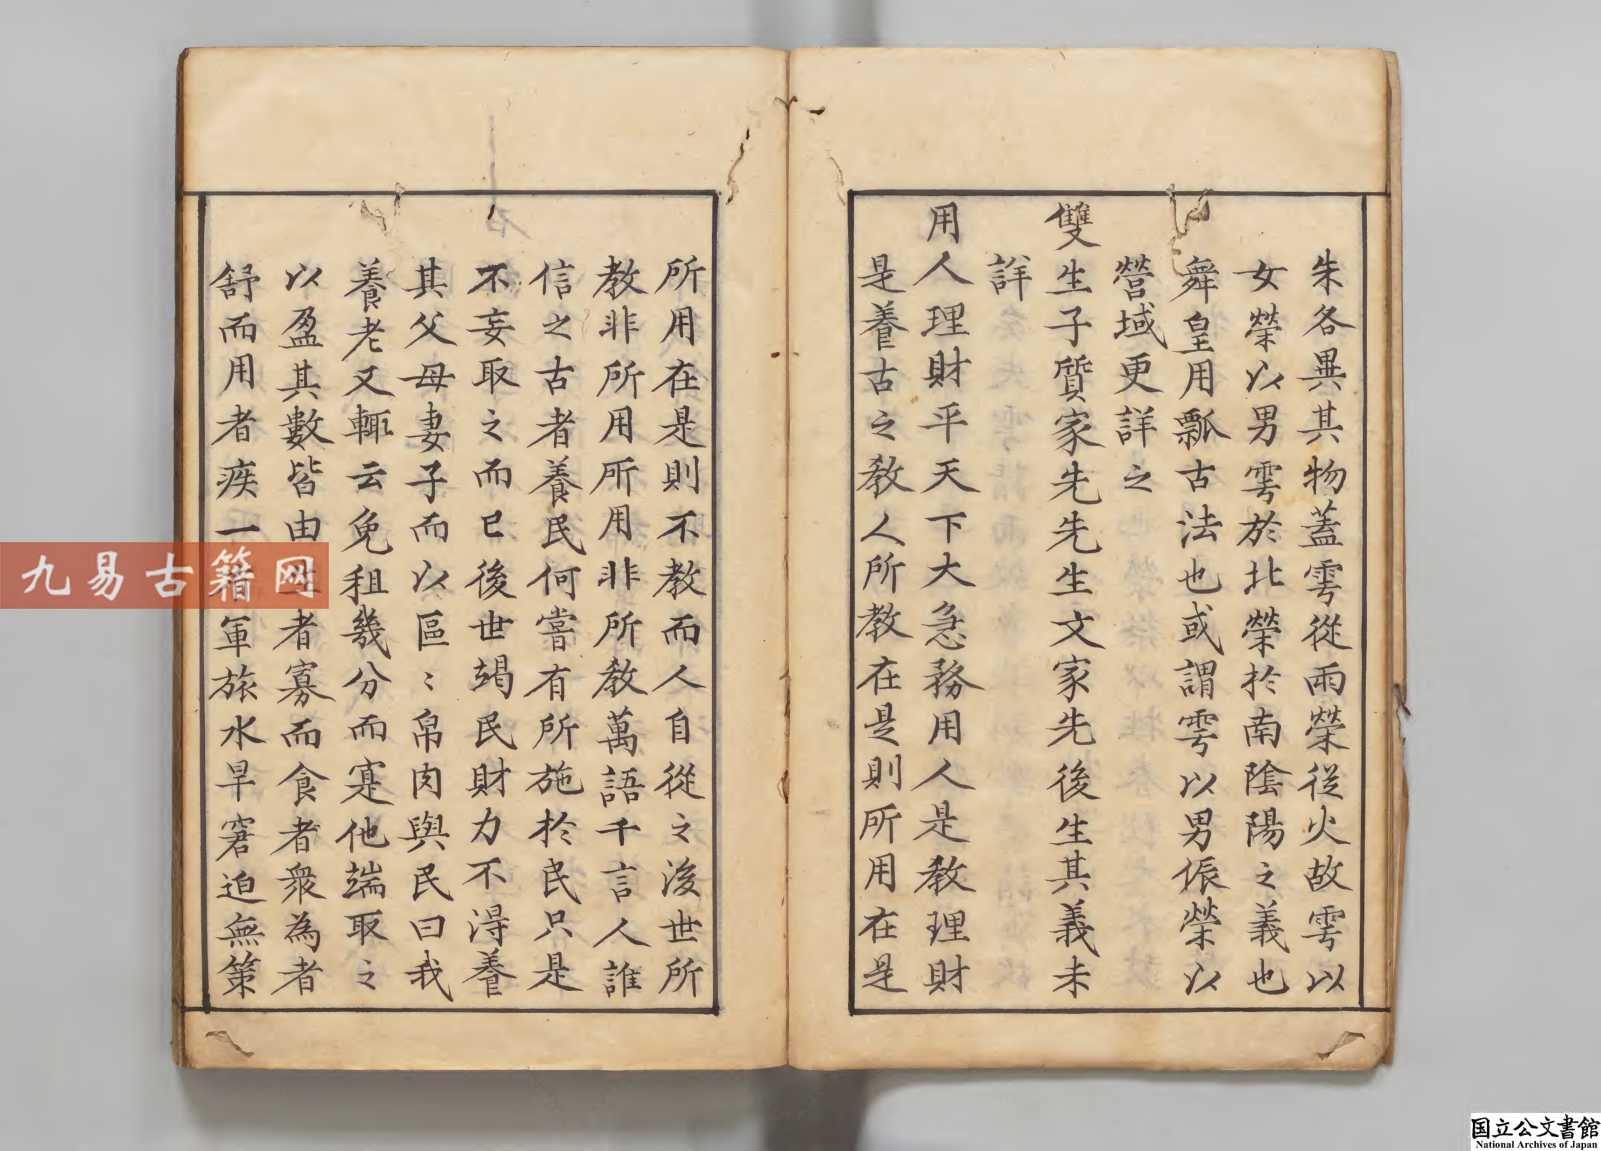 朱各異其物蓋雩從雨榮從火故雩以
女榮以男雩於北榮於南陰陽之義也
舞皇用瓢古法也或謂雩以男侲榮以
營域更詳之
雙生子質家先先生文家先後生其義未
詳
用人理財平天下大急務用人是教理財
是養古之教人所教在是則所用在是
所用在是則不教而人自從之後世所
教非所用所用非所教萬語千言人誰
信之古者養民何嘗有所施於民只是
不妄取之而已後世竭民財力不得養
其父母妻子而以區〻帛肉與民曰我
養老又輒云免租幾分而寔他端取之
以盈其數皆由生者寡而食者衆為者
舒而用者疾一著軍旅水旱窘迫無策
九易古籍网
国立公文書館
National Archives of Japan